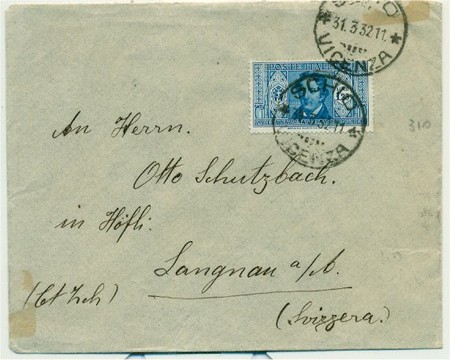 SCHIO
31.3.32 11.
VICENZA
POSTE ITALIANE
SCHIO
VICENZA
310
An Herrn.
Otto Schutzbach.
in Höfli.
Langnau a/A.
(Ct Zch)
(Svizzera.)